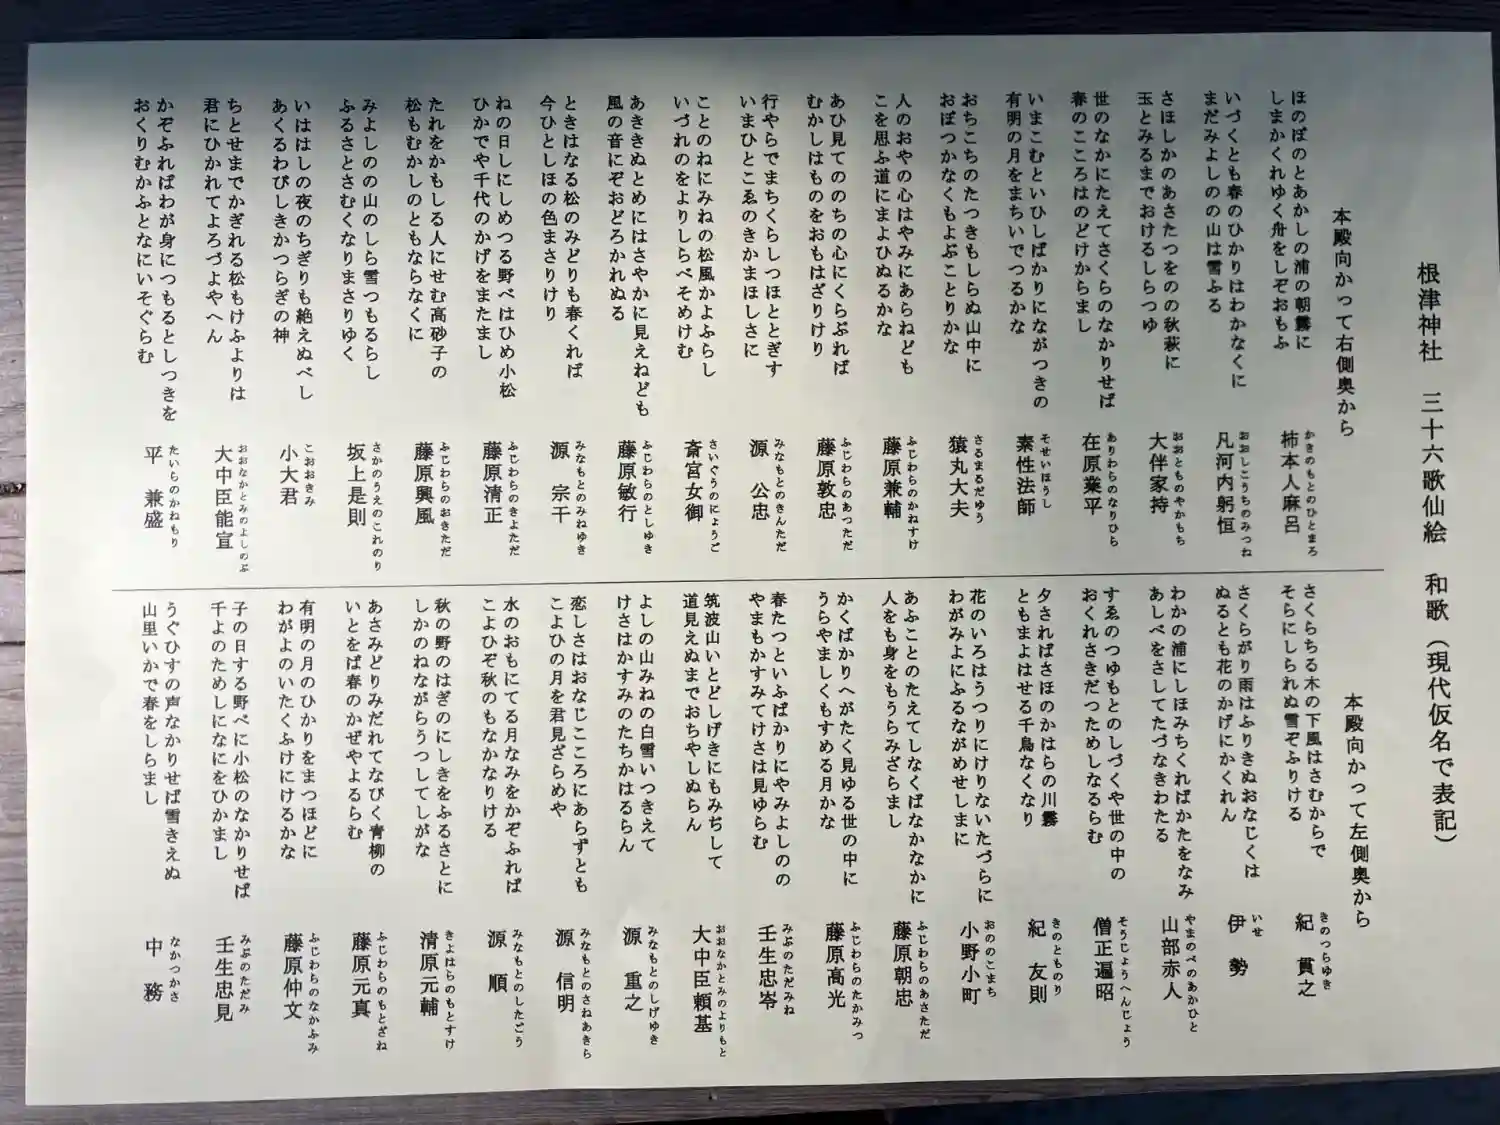 根津神社　三十六歌仙絵　和歌（現代仮名で表記）
本殿向かって右側奥から
ほのぼのとあかしの浦の朝霧に
しまかくれゆく舟をしぞおもふ
かきのもとのひとまろ
柿本人麻呂
いづくとも春のひかりはわかなくに
まだみよしのの山は雪ふる
おおしこうちのみつね
凡河内躬恒
さほしかのあさたつをのの秋萩に
玉とみるまでおけるしらつゆ
おおとものやかもち
大伴家持
世のなかにたえてさくらのなかりせば
春のこころはのどけからまし
ありわらのなりひら
在原業平
いまこむといひしばかりにながつきの
有明の月をまちいでつるかな
そせいほうし
素性法師
おちこちのたつきもしらぬ山中に
おぼつかなくもよぶことりかな
さるまるだゆう
猿丸大夫
人のおやの心はやみにあらねども
こを思ふ道にまよひぬるかな
ふじわらのかねすけ
藤原兼輔
あひ見てののちの心にくらぶれば
むかしはものをおもはざりけり
ふじわらのあつただ
藤原敦忠
行やらでまちくらしつほととぎす
いまひとこゑのきかまほしさに
みなもとのきんただ
源　公忠
ことのねにみねの松風かよふらし
いづれのをよりしらべそめけむ
さいぐうのにょうご
斎宮女御
あききぬとめにはさやかに見えねども
風の音にぞおどろかれぬる
ふじわらのとしゆき
藤原敏行
ときはなる松のみどりも春くれば
今ひとしほの色まさりけり
みなもとのみねゆき
源　宗于
ねの日しにしめつる野べはひめ小松
ひかでや千代のかげをまたまし
ふじわらのきよただ
藤原清正
たれをかもしる人にせむ高砂子の
松もむかしのともならなくに
ふじわらのおきただ
藤原興風
みよしのの山のしら雪つもるらし
ふるさとさむくなりまさりゆく
さかのうえのこれのり
坂上是則
いははしの夜のちぎりも絶えぬべし
あくるわびしきかつらぎの神
こおおきみ
小大君
ちとせまでかぎれる松もけふよりは
君にひかれてよろづよやへん
おおなかとみのよしのぶ
大中臣能宣
かぞふればわが身につもるとしつきを
おくりむかふとなにいそぐらむ
たいらのかねもり
平　兼盛
本殿向かって左側奥から
さくらちる木の下風はさむからで
そらにしられぬ雪ぞふりける
きのつらゆき
紀　貫之
さくらがり雨はふりきぬおなじくは
ぬるとも花のかげにかくれん
いせ
伊　勢
わかの浦にしほみちくればかたをなみ
あしべをさしてたづなきわたる
やまのべのあかひと
山部赤人
すゑのつゆもとのしづくや世の中の
おくれさきだつためしなるらむ
そうじょうへんじょう
僧正遍昭
夕さればさほのかはらの川霧
ともまよはせる千鳥なくなり
きのとものり
紀　友則
花のいろはうつりにけりないたづらに
わがみよにふるながめせしまに
おののこまち
小野小町
あふことのたえてしなくばなかなかに
人をも身をもうらみざらまし
ふじわらのあさただ
藤原朝忠
かくばかりへがたく見ゆる世の中に
うらやましくもすめる月かな
ふじわらのたかみつ
藤原高光
春たつといふばかりにやみよしのの
やまもかすみてけさは見ゆらむ
みぶのただみね
壬生忠岑
筑波山いとどしげきにもみぢして
道見えぬまでおちやしぬらん
おおなかとみのよりもと
大中臣頼基
よしの山みねの白雪いつきえて
けさはかすみのたちかはるらん
みなもとのしげゆき
源　重之
恋しさはおなじこころにあらずとも
こよひの月を君見ざらめや
みなもとのさねあきら
源　信明
水のおもにてる月なみをかぞふれば
こよひぞ秋のもなかなりける
みなもとのしたごう
源　順
秋の野のはぎのにしきをふるさとに
しかのねながらうつしてしがな
きよはらのもとすけ
清原元輔
あさみどりみだれてなびく青柳の
いとをば春のかぜやよるらむ
ふじわらのもとざね
藤原元真
有明の月のひかりをまつほどに
わがよのいたくふけにけるかな
ふじわらのなかふみ
藤原仲文
子の日する野べに小松のなかりせば
千よのためしになにをひかまし
みぶのただみ
壬生忠見
うぐひすの声なかりせば雪きえぬ
山里いかで春をしらまし
なかつかさ
中　務